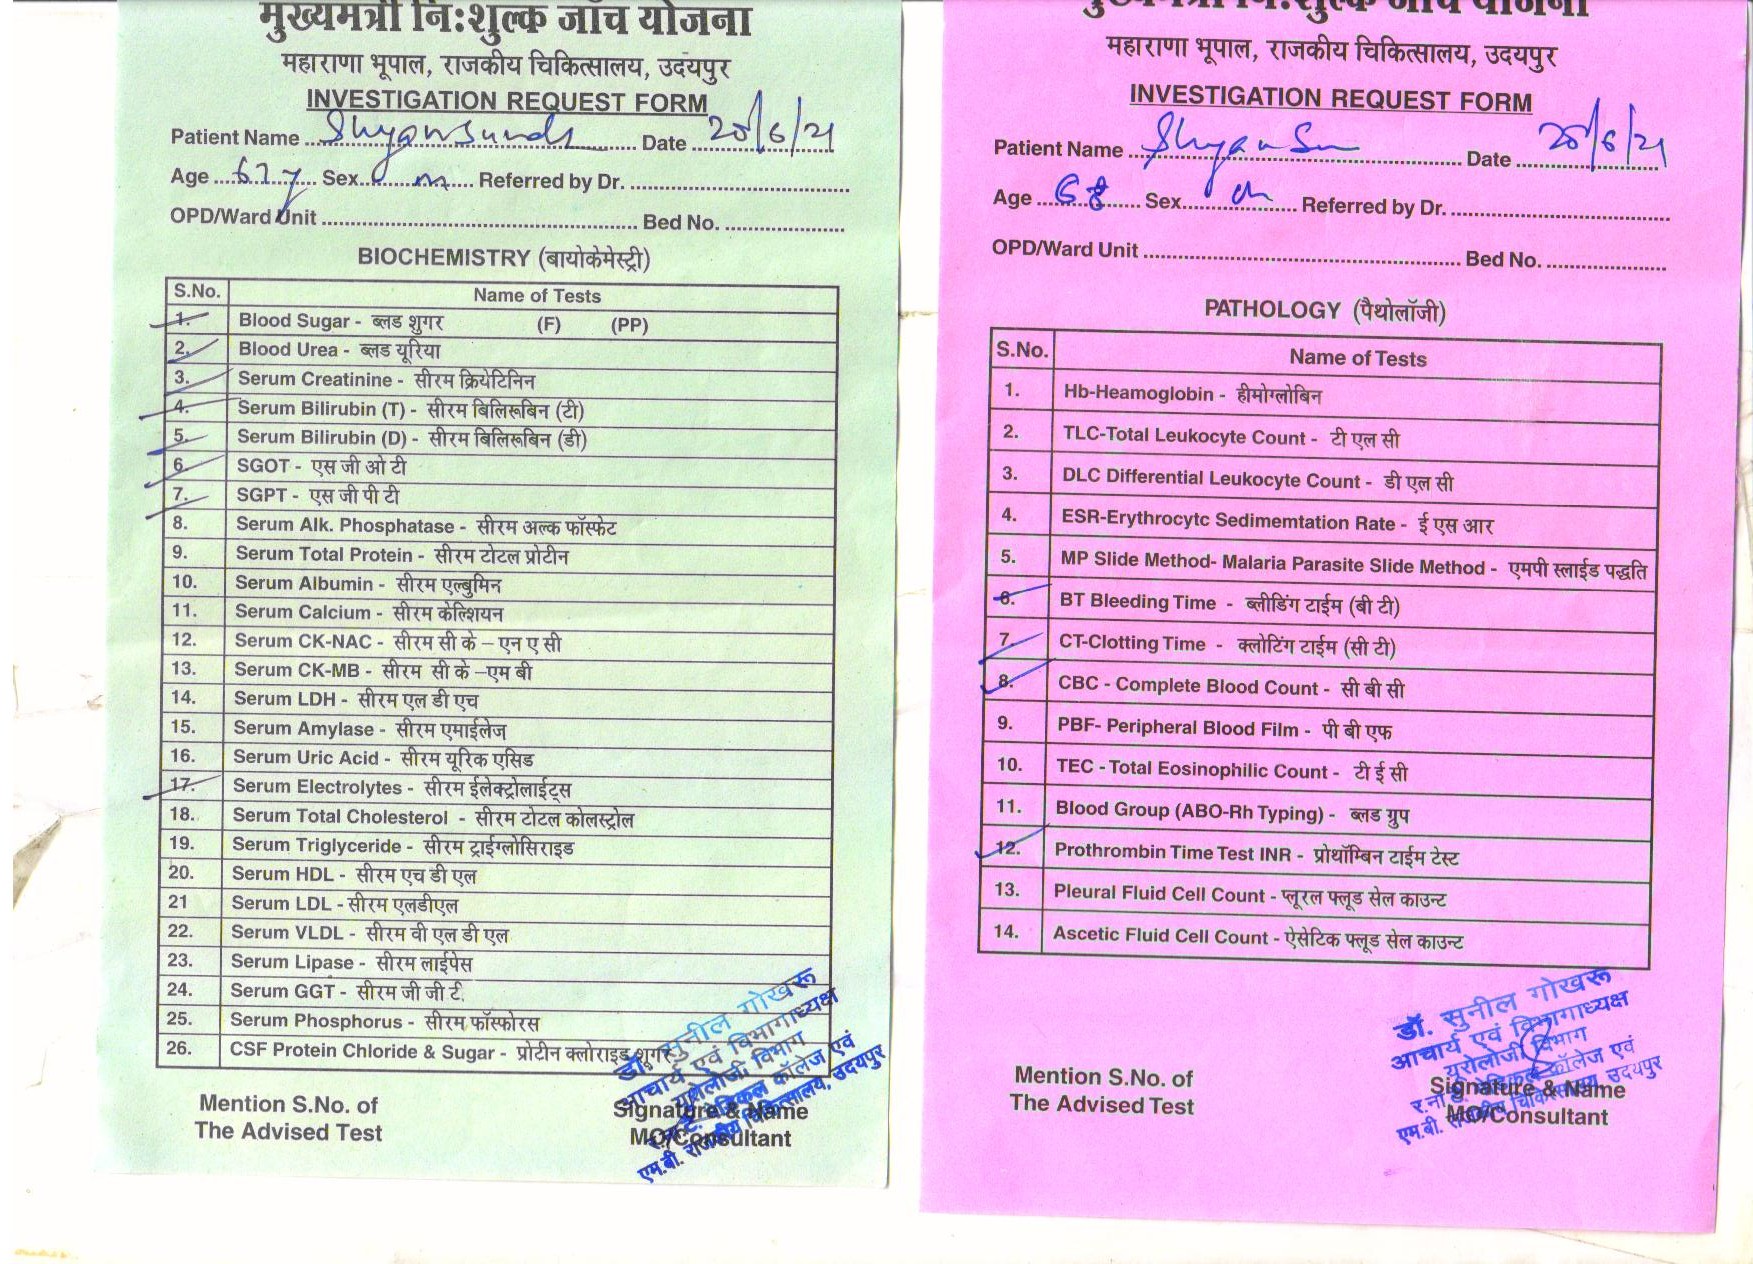 मुख्यमंत्री निःशुल्क जाँच योजना
महाराणा भूपाल, राजकीय चिकित्सालय, उदयपुर
INVESTIGATION REQUEST FORM
Patient Name Shyam Date 25/6/21
Age 67y Sex m Referred by Dr.
OPD/Ward Unit Bed No.
BIOCHEMISTRY (बायोकेमेस्ट्री)
S.No. Name of Tests
1. Blood Sugar - ब्लड शुगर (F) (PP)
2. Blood Urea - ब्लड यूरिया
3. Serum Creatinine - सीरम क्रियेटिनिन
4. Serum Bilirubin (T) - सीरम बिलिरूबिन (टी)
5. Serum Bilirubin (D) - सीरम बिलिरूबिन (डी)
6. SGOT - एस जी ओ टी
7. SGPT - एस जी पी टी
8. Serum Alk. Phosphatase - सीरम अल्क फॉस्फेट
9. Serum Total Protein - सीरम टोटल प्रोटीन
10. Serum Albumin - सीरम एल्बुमिन
11. Serum Calcium - सीरम केल्शियन
12. Serum CK-NAC - सीरम सी के – एन ए सी
13. Serum CK-MB - सीरम सी के –एम बी
14. Serum LDH - सीरम एल डी एच
15. Serum Amylase - सीरम एमाईलेज
16. Serum Uric Acid - सीरम यूरिक एसिड
17. Serum Electrolytes - सीरम ईलेक्ट्रोलाईट्स
18. Serum Total Cholesterol - सीरम टोटल कोलस्ट्रोल
19. Serum Triglyceride - सीरम ट्राईग्लोसिराइड
20. Serum HDL - सीरम एच डी एल
21 Serum LDL - सीरम एलडीएल
22. Serum VLDL - सीरम वी एल डी एल
23. Serum Lipase - सीरम लाईपेस
24. Serum GGT - सीरम जी जी टी.
25. Serum Phosphorus - सीरम फॉस्फोरस
26. CSF Protein Chloride & Sugar - प्रोटीन क्लोराइड शूगर
Mention S.No. of
The Advised Test
Signature & Name
MO/Consultant
डॉ. सुनील गोखरू
आचार्य एवं विभागाध्यक्ष
यूरोलोजी विभाग
मेडिकल कॉलेज एवं
एम.बी. राजकीय चिकित्सालय, उदयपुर
मुख्यमंत्री निःशुल्क जाँच योजना
महाराणा भूपाल, राजकीय चिकित्सालय, उदयपुर
INVESTIGATION REQUEST FORM
Patient Name Shyam Date 25/6/21
Age Sex m Referred by Dr.
OPD/Ward Unit Bed No.
PATHOLOGY (पैथोलॉजी)
S.No. Name of Tests
1. Hb-Heamoglobin - हीमोग्लोबिन
2. TLC-Total Leukocyte Count - टी एल सी
3. DLC Differential Leukocyte Count - डी एल सी
4. ESR-Erythrocytc Sedimemtation Rate - ई एस आर
5. MP Slide Method- Malaria Parasite Slide Method - एमपी स्लाईड पद्धति
6. BT Bleeding Time - ब्लीडिंग टाईम (बी टी)
7. CT-Clotting Time - क्लोटिंग टाईम (सी टी)
8. CBC - Complete Blood Count - सी बी सी
9. PBF- Peripheral Blood Film - पी बी एफ
10. TEC - Total Eosinophilic Count - टी ई सी
11. Blood Group (ABO-Rh Typing) - ब्लड ग्रुप
12. Prothrombin Time Test INR - प्रोथॉम्बिन टाईम टेस्ट
13. Pleural Fluid Cell Count - प्लूरल फ्लूड सेल काउन्ट
14. Ascetic Fluid Cell Count - ऐसेटिक फ्लूड सेल काउन्ट
Mention S.No. of
The Advised Test
Signature & Name
MO/Consultant
डॉ. सुनील गोखरू
आचार्य एवं विभागाध्यक्ष
यूरोलोजी विभाग
कॉलेज एवं
एम.बी. राजकीय चिकित्सालय, उदयपुर